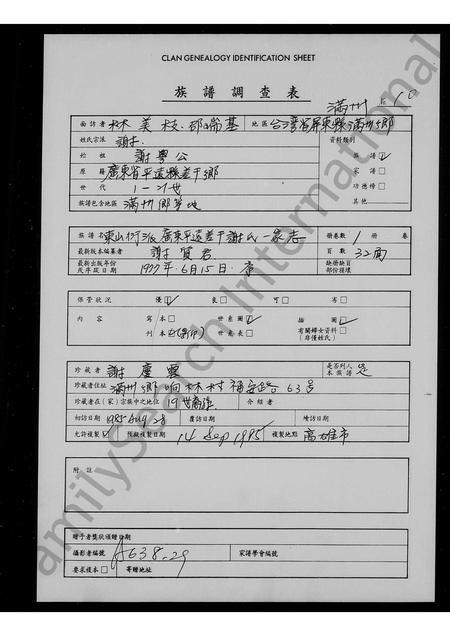 CLAN GENEALOGY IDENTIFICATION SHEET
族譜調查表
滿州 10
面訪者 林美枝.邵瑞基 地區 台灣省屏東縣滿州鄉
姓氏宗派 謝 資料類別
始祖 謝粵公 族譜 ✓
原籍 廣東省平遠縣差干鄉 家譜
世代 1-21世 功德榜
族譜包含地區 滿州鄉等地 其他
族譜名 東山衍派廣東平遠差干謝氏一家志 冊卷數 1 冊 卷
最新版本編纂者 謝賢君 頁數 32面
最新出版年份或序跋日期 1977年.6月15日 缺冊缺頁部份損壞
保管狀況 優 ✓ 良 可 劣
內容 寫本 世系圖 ✓ 插圖 ✓
刊本 世系表 有關婦女資料(非僅姓氏)
珍藏者 謝慶雲 是否列入本族譜 是
珍藏者住址 滿州鄉响林村福安路63号
珍藏者在(家)宗族中之地位 19世裔孫 介紹者
初訪日期 1985 Aug 28 覆訪日期 續訪日期
允許複製 ✓ 預擬複製日期 14 Sep 1985 複製地點 高雄市
附註
贈予者獎狀頒贈日期
攝影者編號 A638-29 家譜學會編號
要求複本 寄贈地址
FamilySearch International